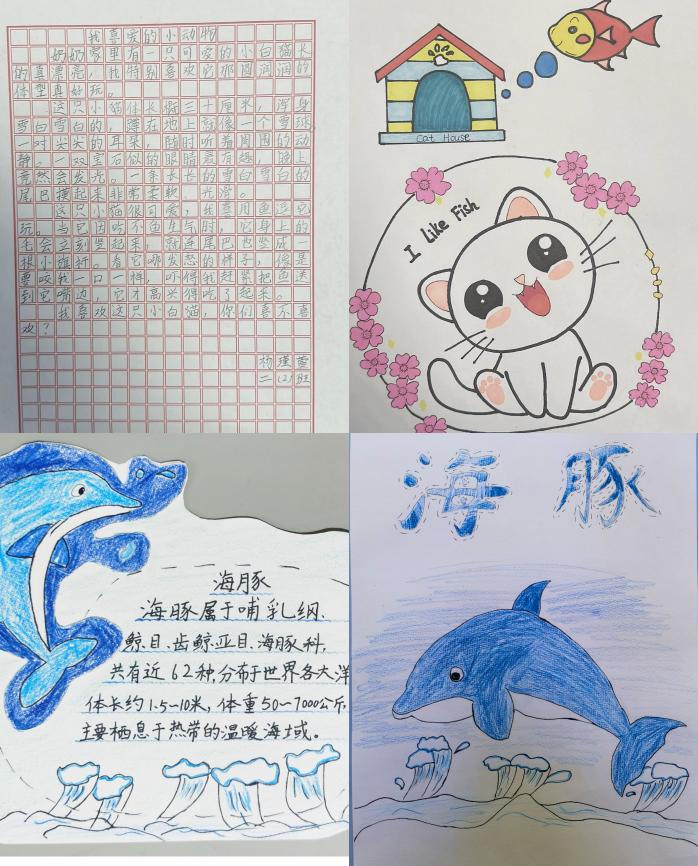 我喜爱的小动物
奶奶家里有一只可爱的小白猫长
的真漂亮，我特别喜欢它那圆润润的
体型真好玩。
这只小猫体长约三十厘米，浑身
雪白雪白的，蹲在地上就像一个雪球。
一对尖尖的耳朵，随时听着周围的动
静。一双宝石似的眼睛最有趣，晚上
竟然会发光。一条长长的雪白雪白的
尾巴摸起来非常柔软、光滑。
这只小猫很可爱，我喜用鱼逗它
玩。当它因吃不鱼生气时，它身上的
毛会立刻竖起来，就连尾巴也竖成一
根小旗杆。看它哪发怒的样子，像是
要咬我一口一样，吓得我赶紧把鱼送
到它嘴边，它才高兴得吃了起来。
我喜欢这只小白猫，你们喜不喜
欢？
杨瑾萱
二（2）班
Cat House
I Like Fish
海豚
海豚属于哺乳纲、
鲸目、齿鲸亚目、海豚科，
共有近62种分布于世界各大洋
体长约1.5~10米，体重50~7000公斤，
主要栖息于热带的温暖海域。
海豚